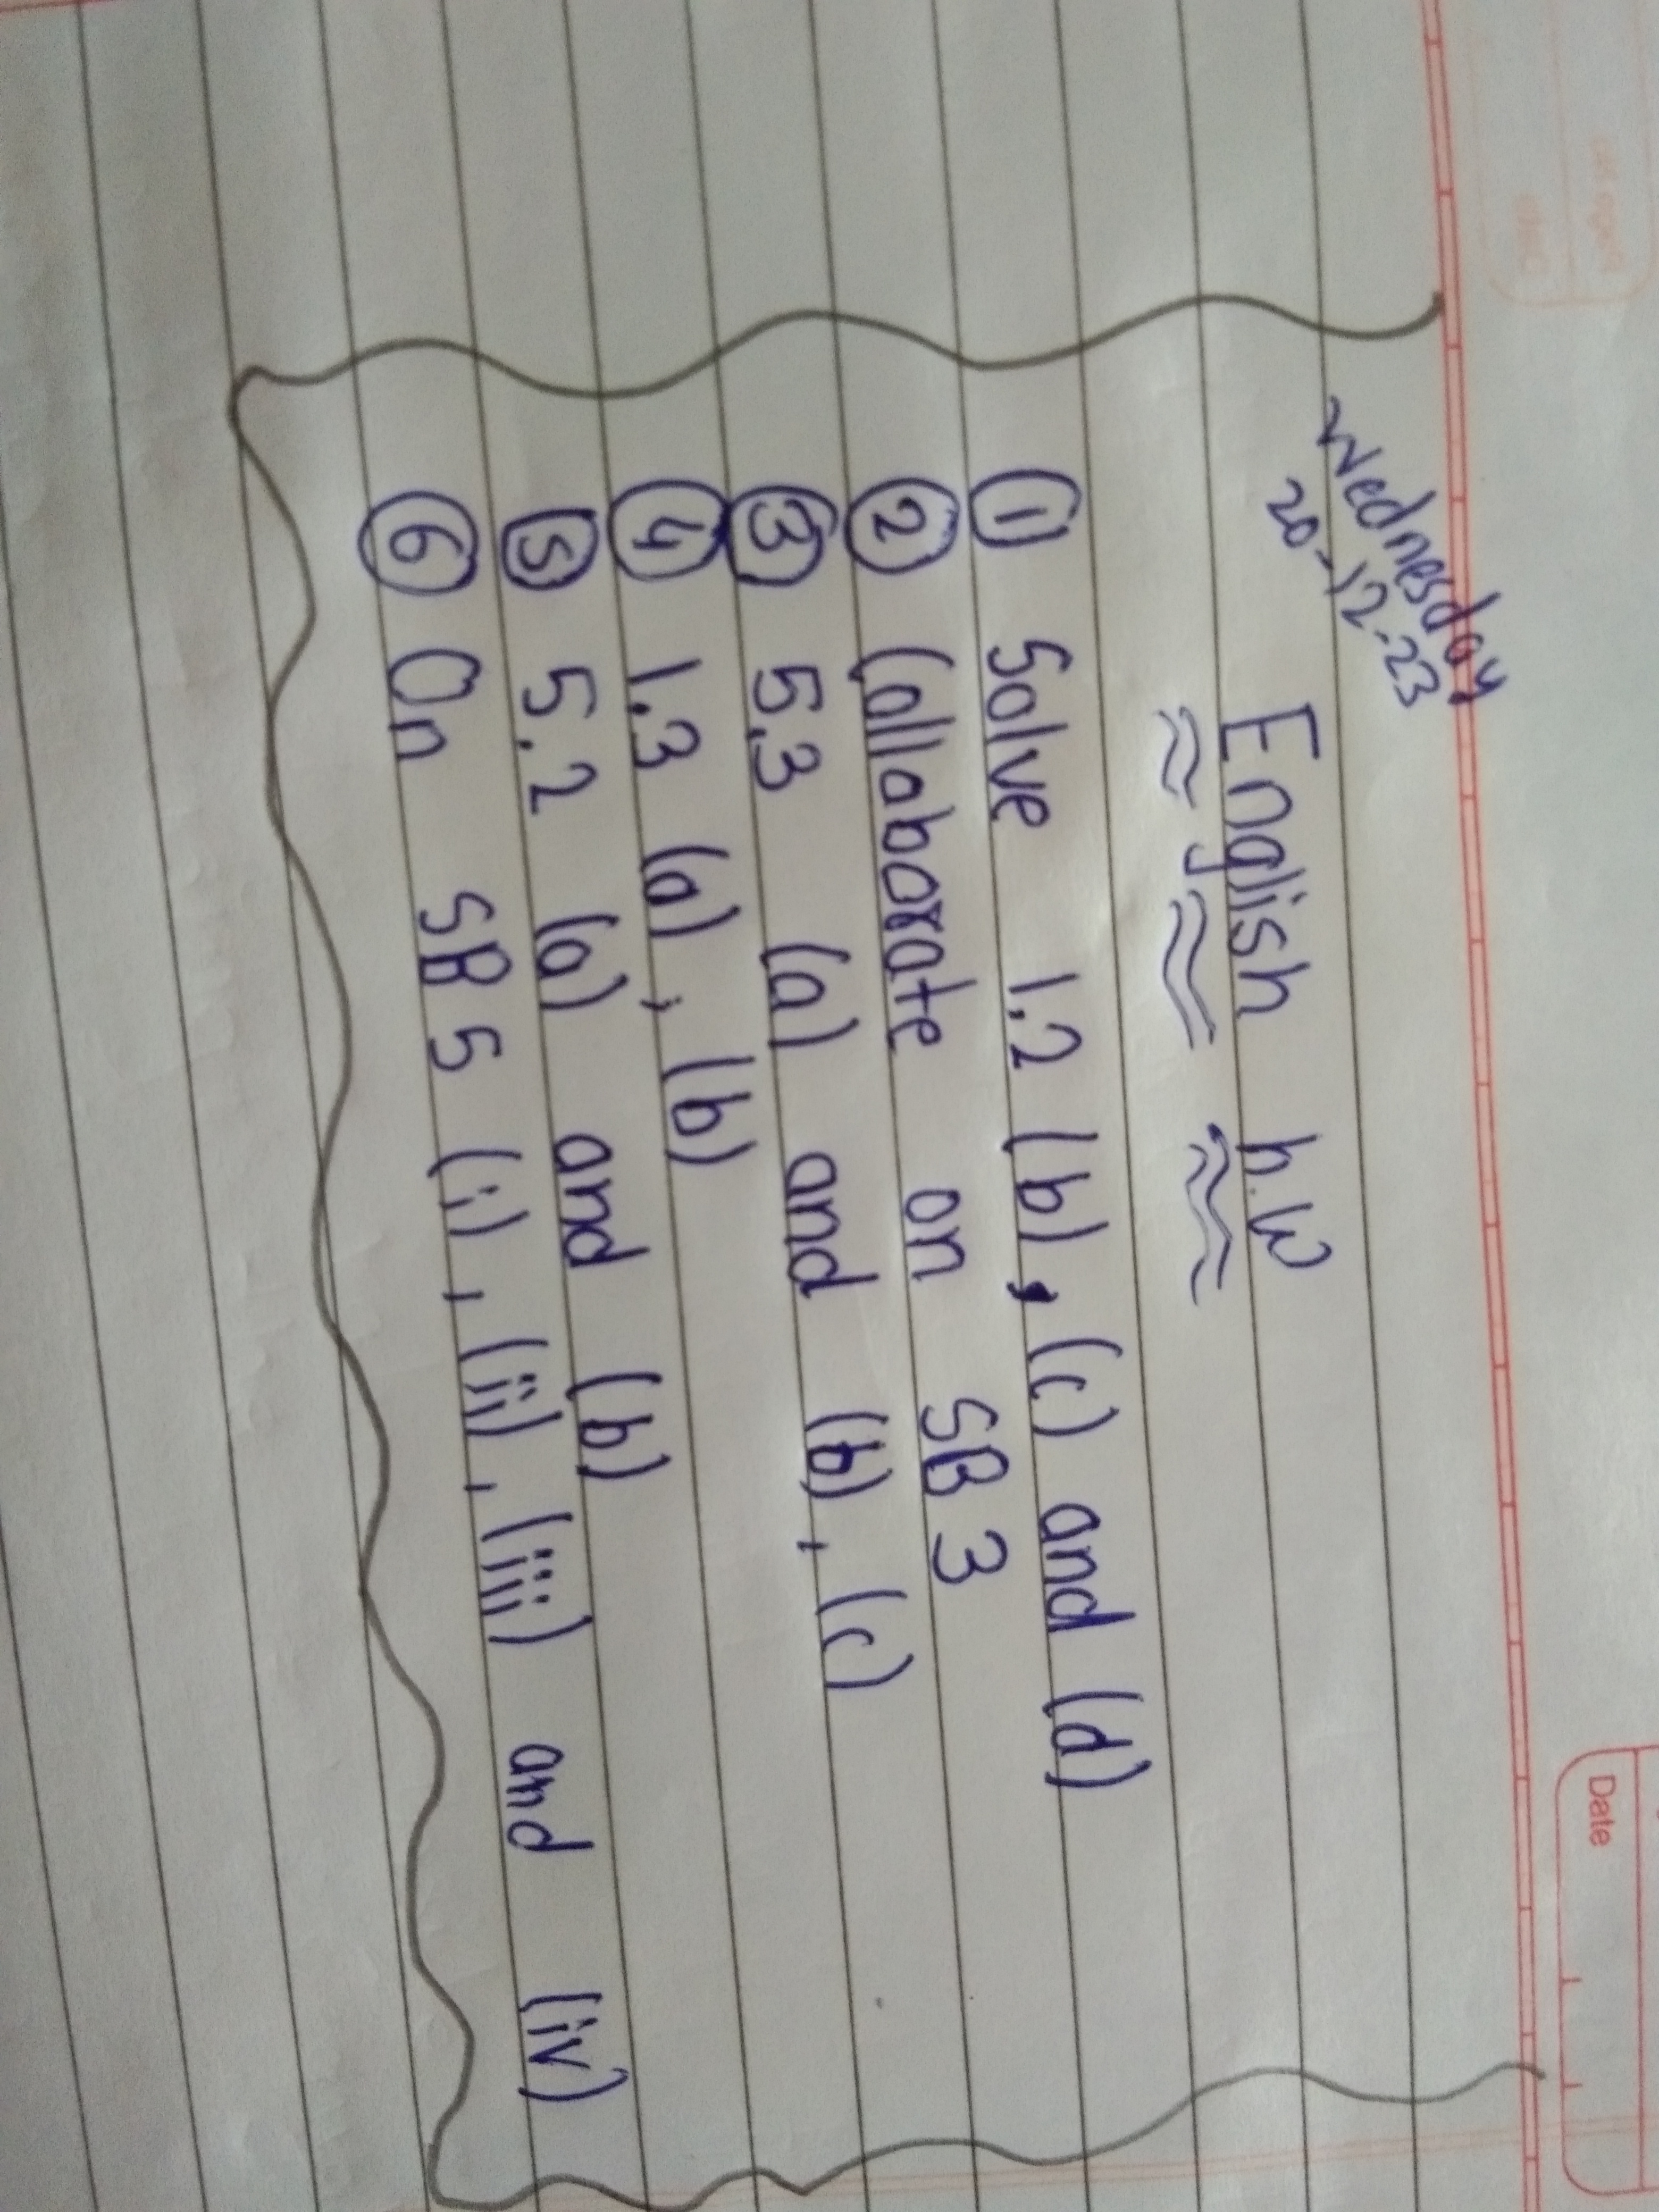 Date
Wednesday
20-12-23
English h.W
① Solve 1.2 (b), (c) and (d)
② Collaborate on SB 3
③ 5.3 (a) and (b), (c)
④ 1.3 (a), (b)
⑤ 5.2 (a) and (b)
⑥ On SB 5 (i), (ii), (iii) and (iv)